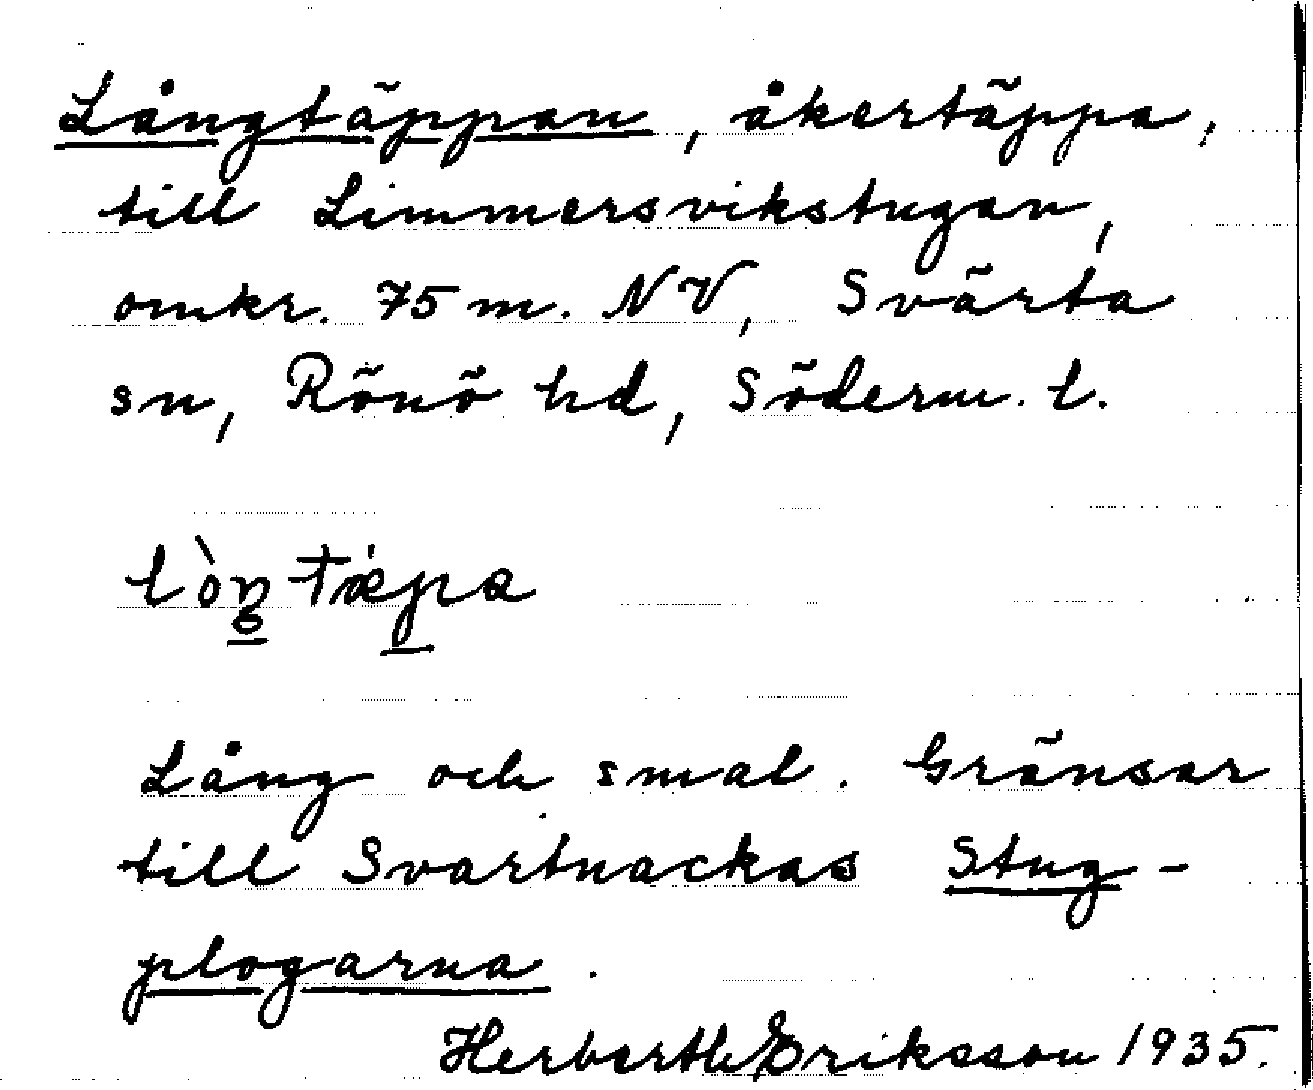 Långtäppan, åkertäppa,
till Limmersvikstugan,
omkr. 75 m. NV, Svärta
sn, Rönö hd, Söderm. l.
lòŋtæ̀pa
Lång och smal. Gränsar
till Svartnackas Stug-
plogarna.
Herberth Eriksson 1935.